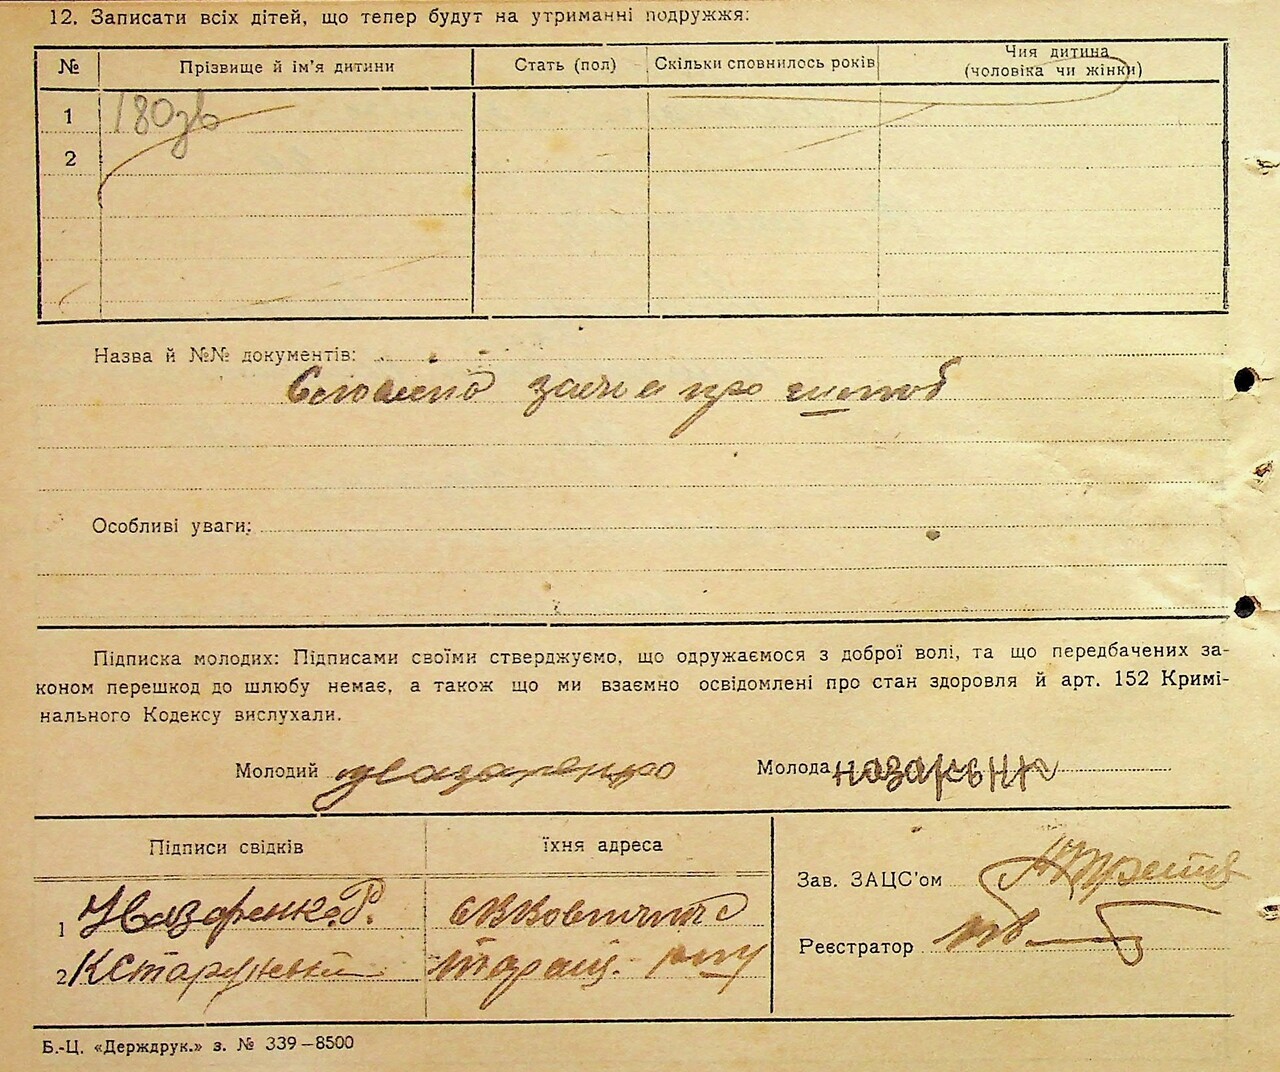 12. Записати всіх дітей, що тепер будут на утриманні подружжя:
№ Прізвище й ім'я дитини Стать (пол) Скільки сповнилось років Чия дитина (чоловіка чи жінки)
1 180зв
2
Назва й №№ документів:
про шлюб
Особливі уваги:
Підписка молодих: Підписами своїми стверджуємо, що одружаємося з доброї волі, та що передбачених за-
коном перешкод до шлюбу немає, а також що ми взаємно освідомлені про стан здоровля й арт. 152 Кримі-
нального Кодексу вислухали.
Молодий Назаренко Молода
Підписи свідків їхня адреса
Зав. ЗАЦС'ом
1 Назаренко Р.
Реєстратор
2
Б.-Ц. «Держдрук.» з. № 339–8500